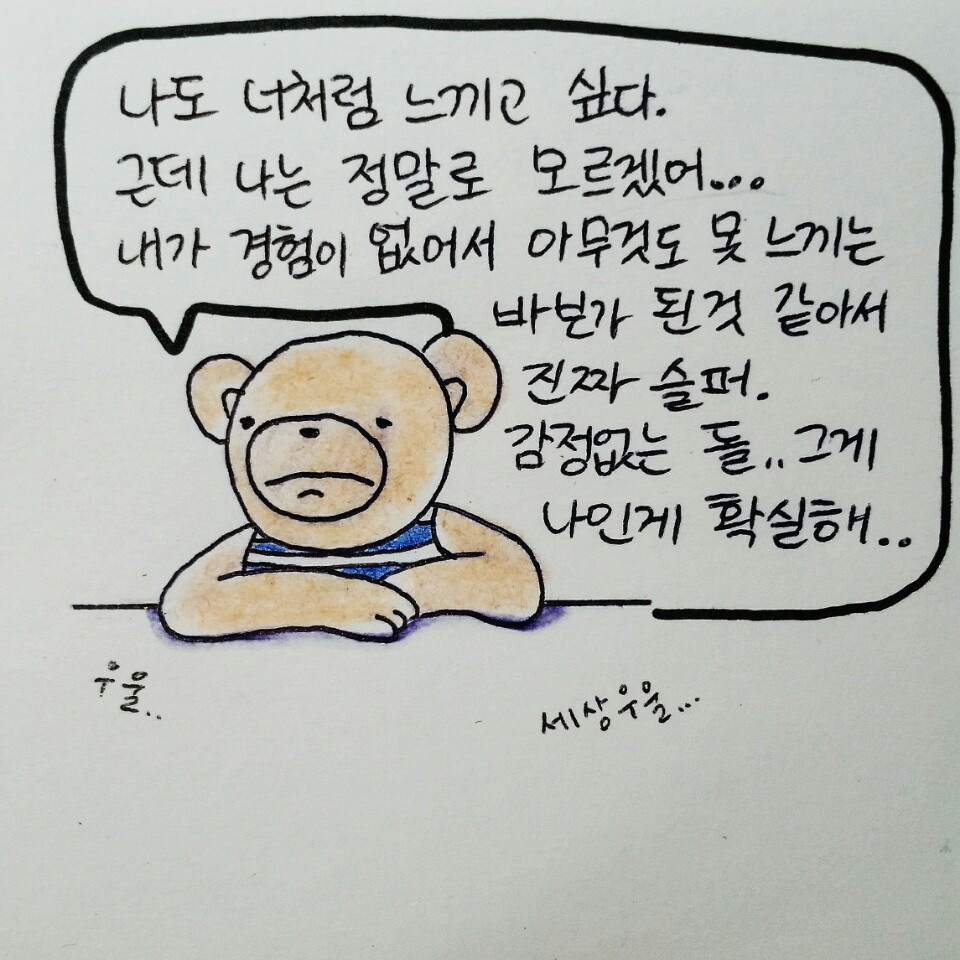 나도 너처럼 느끼고 싶다.
근데 나는 정말로 모르겠어...
내가 경험이 없어서 아무것도 못 느끼는
바보가 된것 같아서
진짜 슬퍼.
감정없는 돌..그게
나인게 확실해..
우울..
세상우울...